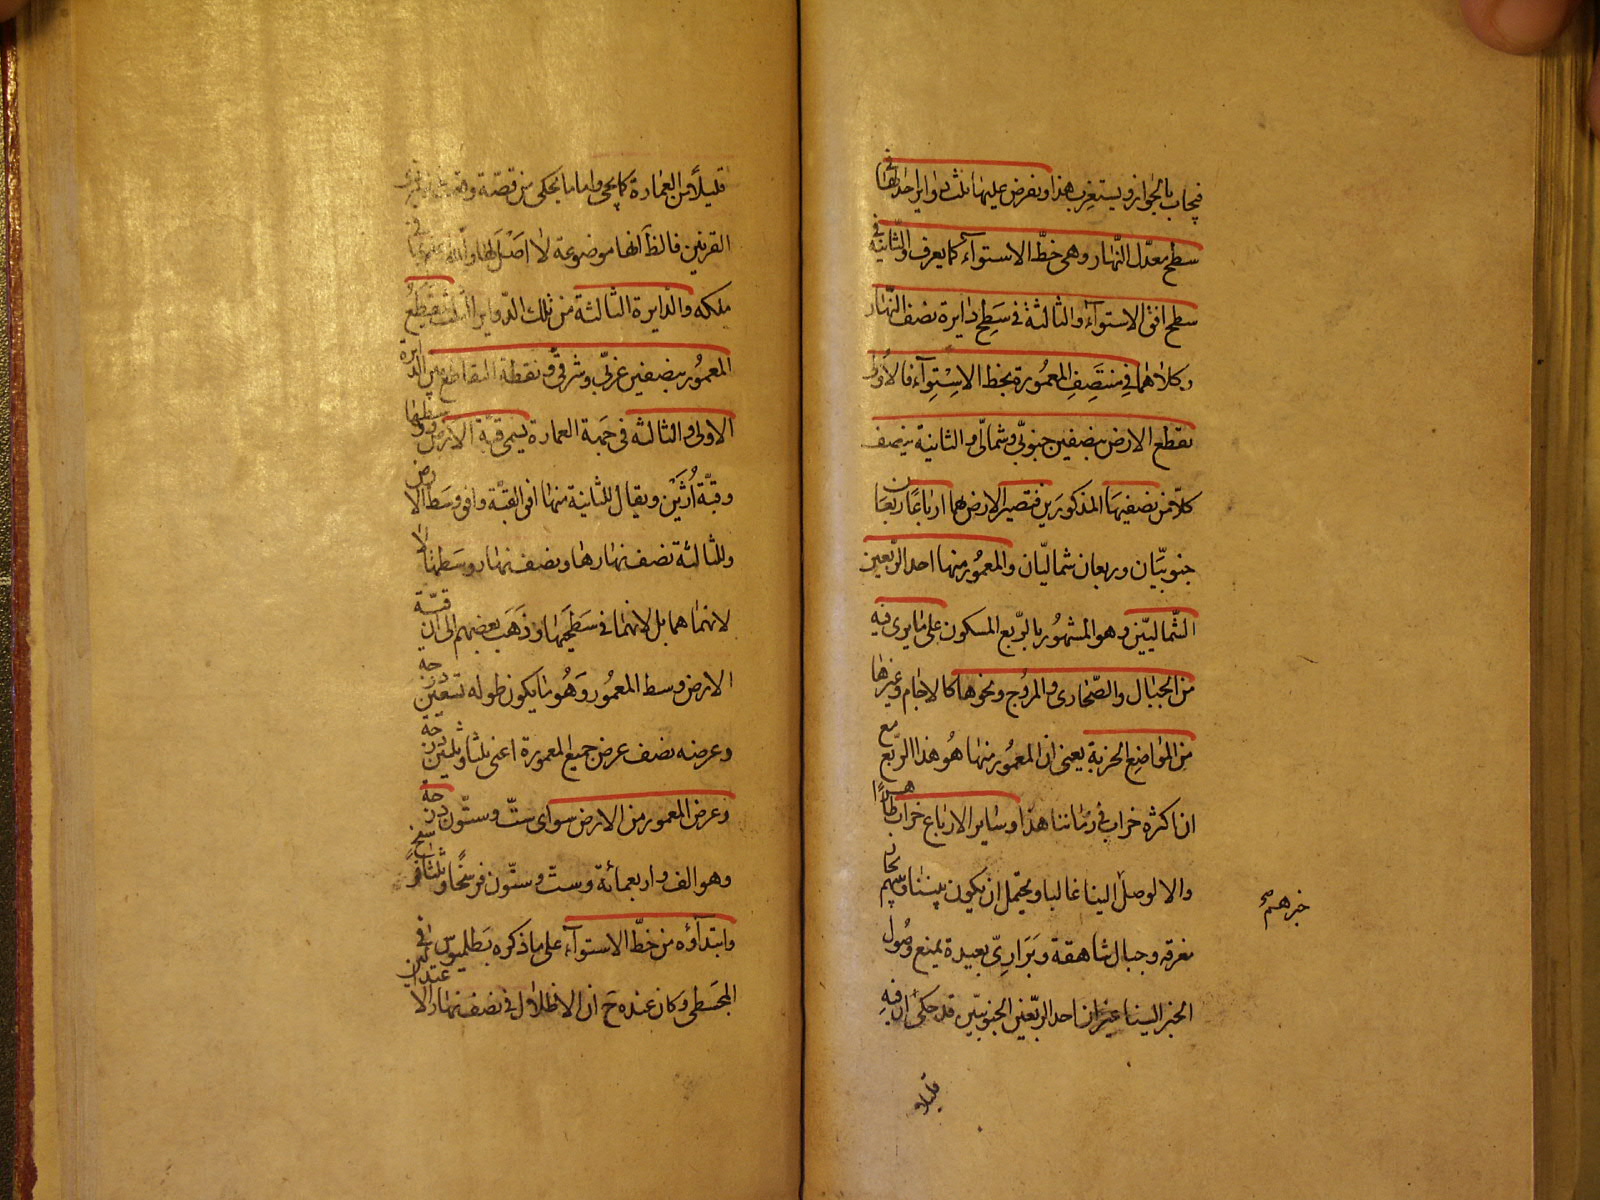 فيجاب بالجواز ويستغرب هذا ونفرض عليها ثلث دواير احدٰيها في
سطح معدّل النّهار وهى خطّ الاستوآء كما يعرف والثّانية في
سطح افق الاستوآء والثالثة في سطح دايرة نصف النّهار
وكلاهما في منتصف المعمورة بخط الاستوآء فالاولى
تقطع الارض بنصفين جنوبىّ وشمالىّ والثانية بنصف
كلاّ من نصفيها المذكورين فتصير الارض بهما ارباعًا ربعان
جنوبيّان وربعان شماليّان والمعمور منها احد الرّبعين
الشّماليّين وهو المشهور بالرّبع المسكون على ما يرى فيه
من الجبال والصّحارى والمروج ونحوها كالاجام وغيرها
من المواضع الخربة يعنى ان المعمور منها هو هذا الرّبع مع
ان اكثره خراب في زماننا هذا وساير الارباع خراب ظاهرًا
والا لوصل الينا غالبا ويحتمل ان يكون بيننا وبينهم بحار
مغرقة وجبال شاهقة وبرارى بعيدة يمنع وصول
الخبر الينا غير ان احد الرّبعين الجنوبيّين قد حكى ان فيه
خبرهم صح
قليلا
قليلاً من العمارة كما يجى واما ما يحكى من قصّة
القرنين فالظ انها موضوعة لا اصل لها والله
ملكه والدايرة الثالثة من تلك الدواير الثلث تقطع
المعمور بنصفين غربّى وشرقّى ونقطة التقاطع بين الدايرة
الاولى والثالثه في جهة العمارة يسمى قبّة الارض ووسطها
وقبّة أُرَيْن ويقال للثانية منها افق القبّة وافق وسط الارض
وللثالثة نصف نهارها ونصف نهار وسطها لا
لانهما هما بل لانهما في سطحيهما وذهب بعضهم الى ان قبّة
الارض وسط المعمور وهو ما يكون طوله تسعين درجة
وعرضه نصف عرض جميع المعمورة اعنى ثلثا وثلثين درجة
وعرض المعمور من الارض سواى ستّ وستّون درجة
وهو الف واربعمائة وستّ وستّون فرسخًا وثلثا فرسخ
وابتدآؤه من خطّ الاستوآء على ما ذكره بطلميوس في
المجسطى وكان عنده ح ان الاظلال في نصف نهار الاعتدالين